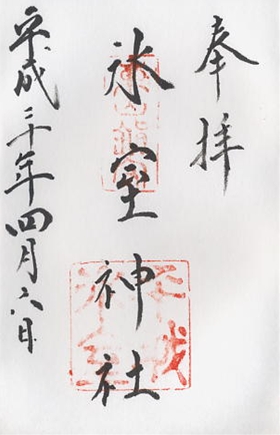 奉拝
氷室神社
平成三十年四月六日